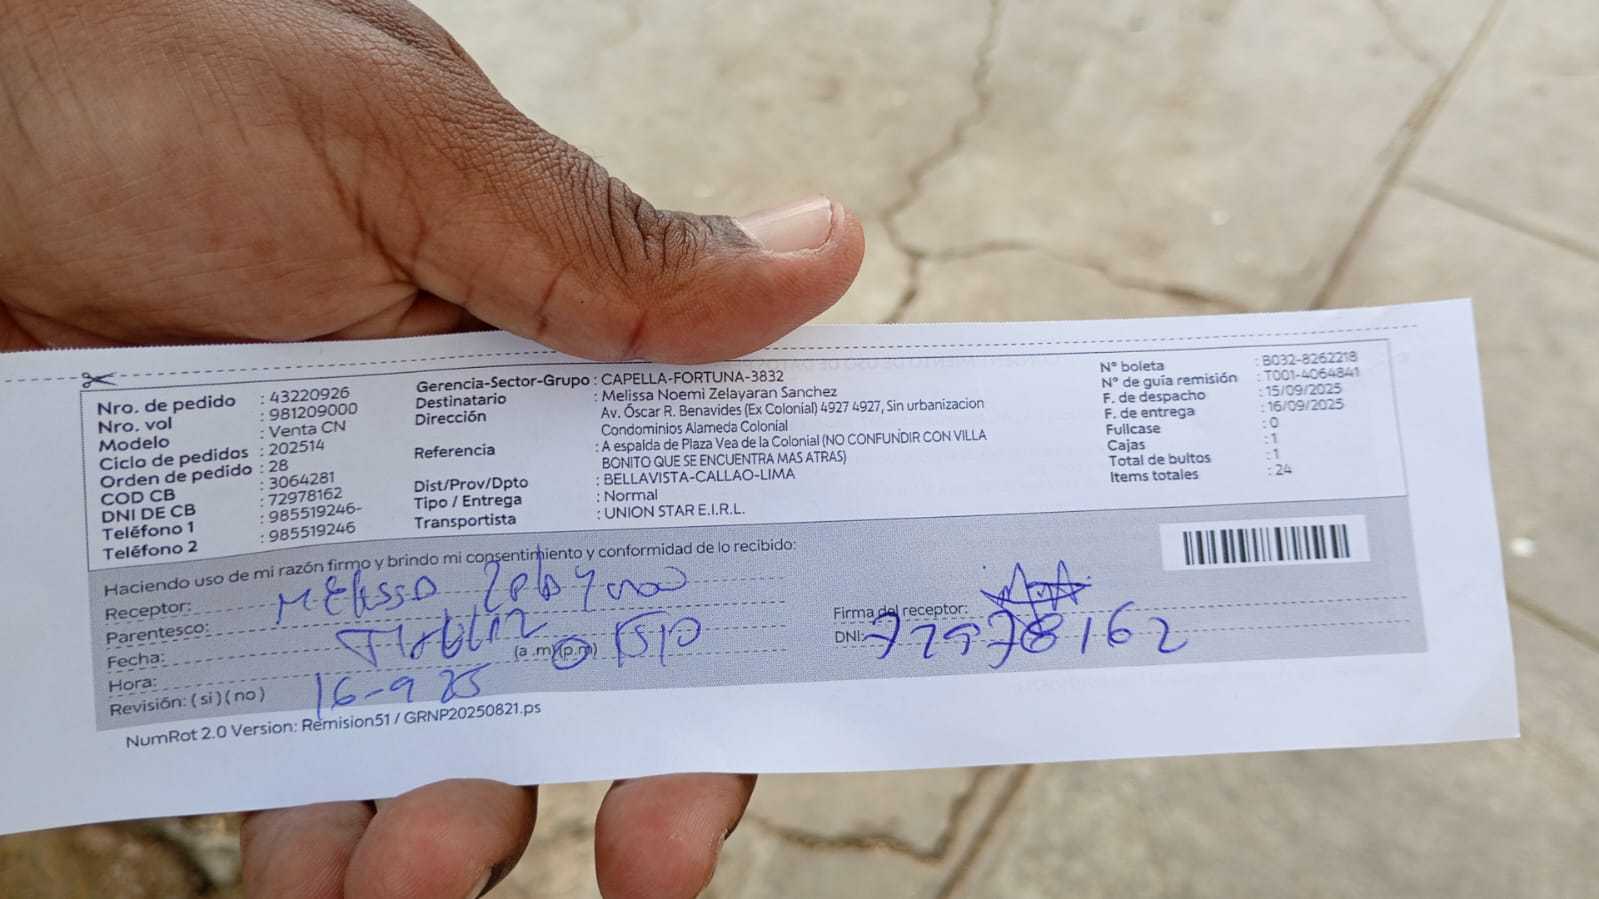 Nro. de pedido : 43220926
Nro. vol : 981209000
Modelo : Venta CN
Ciclo de pedidos : 202514
Orden de pedido : 28
COD CB : 3064281
DNI DE CB : 72978162
Teléfono 1 : 985519246-
Teléfono 2 : 985519246
Gerencia-Sector-Grupo : CAPELLA-FORTUNA-3832
Destinatario : Melissa Noemi Zelayaran Sanchez
Dirección : Av. Óscar R. Benavides (Ex Colonial) 4927 4927, Sin urbanizacion
Condominios Alameda Colonial
Referencia : A espalda de Plaza Vea de la Colonial (NO CONFUNDIR CON VILLA
BONITO QUE SE ENCUENTRA MAS ATRAS)
Dist/Prov/Dpto : BELLAVISTA-CALLAO-LIMA
Tipo / Entrega : Normal
Transportista : UNION STAR E.I.R.L.
N° boleta : B032-8262218
N° de guía remisión : T001-4064841
F. de despacho : 15/09/2025
F. de entrega : 16/09/2025
Fullcase : 0
Cajas : 1
Total de bultos : 1
Items totales : 24
Haciendo uso de mi razón firmo y brindo mi consentimiento y conformidad de lo recibido:
Receptor:
Parentesco:
Fecha:
Hora: (a .m)(p.m)
Revisión: ( si ) ( no ) 16-9 25
Firma del receptor:
DNI: 72978162
NumRot 2.0 Version: Remision51 / GRNP20250821.ps